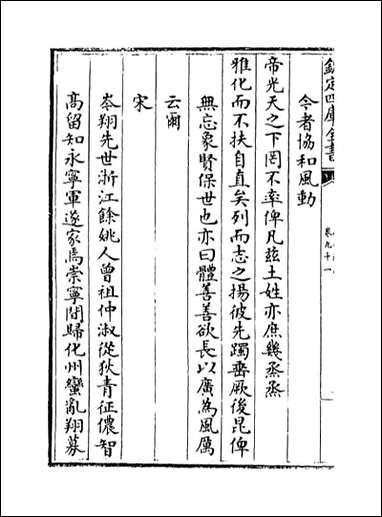 欽定四庫全書
卷九十一
今者協和風動
帝光天之下罔不率俾凡兹土姓亦庶幾烝烝
雅化而不扶自直矣列而志之揚彼先躅垂厥後昆俾
無忘象賢保世也亦曰體善善欲長以廣為風厲
云爾
宋
岑翔先世浙江餘姚人曾祖仲淑從狄青征儂智
高留知永寧軍遂家焉崇寧間歸化州蠻亂翔募